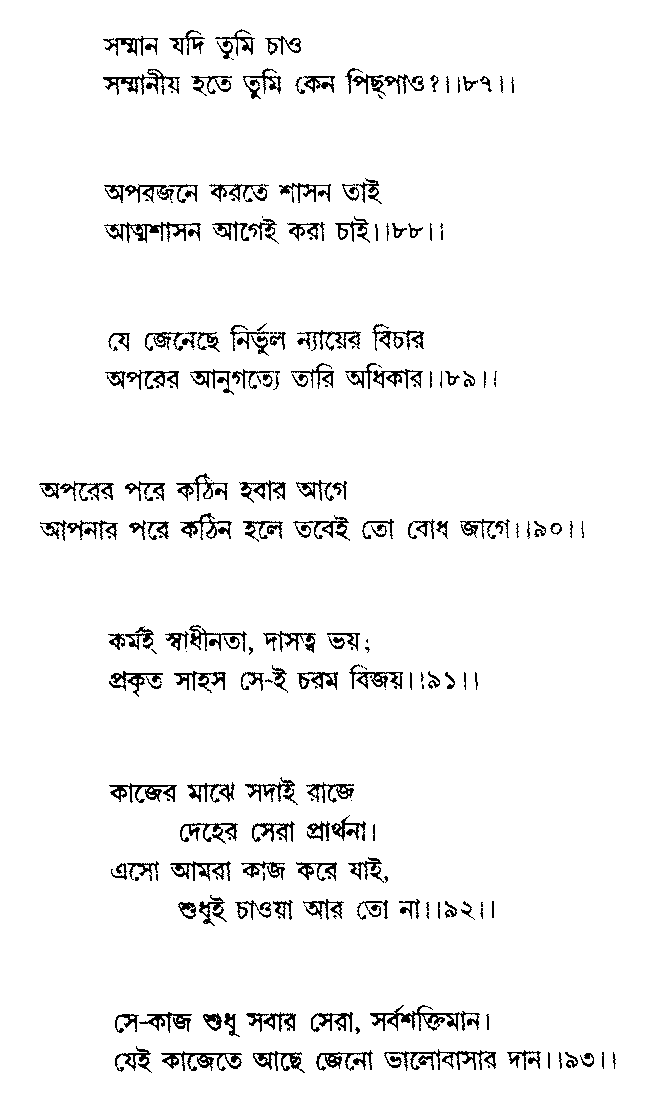 সম্মান যদি তুমি চাও
সম্মানীয় হতে তুমি কেন পিছ্‌পাও?।।৮৭।।
অপরজনে করতে শাসন তাই
আত্মশাসন আগেই করা চাই।।৮৮।।
যে জেনেছে নির্ভুল ন্যায়ের বিচার
অপরের আনুগত্যে তারি অধিকার।।৮৯।।
অপরের পরে কঠিন হবার আগে
আপনার পরে কঠিন হলে তবেই তো বোধ জাগে।।৯০।।
কর্মই স্বাধীনতা, দাসত্ব ভয়;
প্রকৃত সাহস সে-ই চরম বিজয়।।৯১।।
কাজের মাঝে সদাই রাজে
দেহের সেরা প্রার্থনা।
এসো আমরা কাজ করে যাই,
শুধুই চাওয়া আর তো না।।৯২।।
সে-কাজ শুধু সবার সেরা, সর্বশক্তিমান।
যেই কাজেতে আছে জেনো ভালোবাসার দান।।৯৩।।